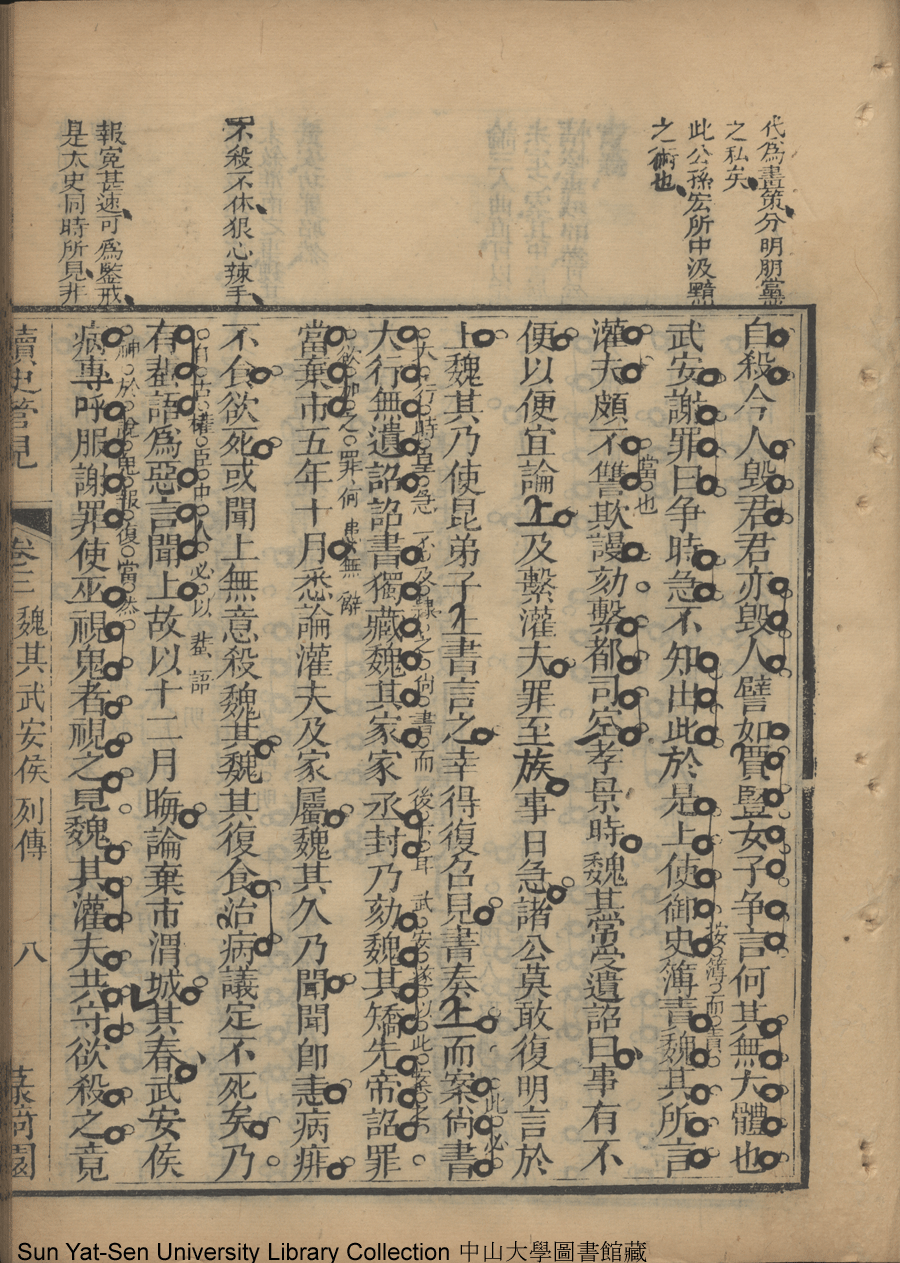 代為畫策分明朋黨
之私矣
此公孫宏所中汲黯
之術也
不殺不休狠心辣手
報冤甚速可為鑒戒
是太史同時所見非
自殺今人毀君君亦毀人譬如賈豎女子争言何其無大體也
武安謝罪曰争時急不知出此於是上使御史簿責魏其所言
按簿而責
灌夫頗不讐欺謾劾繫都司空孝景時魏其常受遺詔曰事有不
當也
便以便宜論上及繫灌夫罪至族事日急諸公莫敢復明言於
此必
上魏其乃使昆弟子上書言之幸得復召見書奏上而案尚書
大行時皇急不及錄之尚書而後下耳武安遂以此案之
大行無遺詔詔書獨藏魏其家家丞封乃劾魏其矯先帝詔罪
欲加之罪何患無辭
當棄市五年十月悉論灌夫及家屬魏其久乃聞聞卽恚病痱
不食欲死或聞上無意殺魏其魏其復食治病議定不死矣乃
自古權臣中人必以蜚語
有蜚語為惡言聞上故以十二月晦論棄市渭城其春武安侯
神於說鬼報復當然
病專呼服謝罪使巫視鬼者視之見魏其灌夫共守欲殺之竟
讀史管見
卷三
魏其武安侯列傳
八
Sun Yat-Sen University Library Collection 中山大學圖書館藏